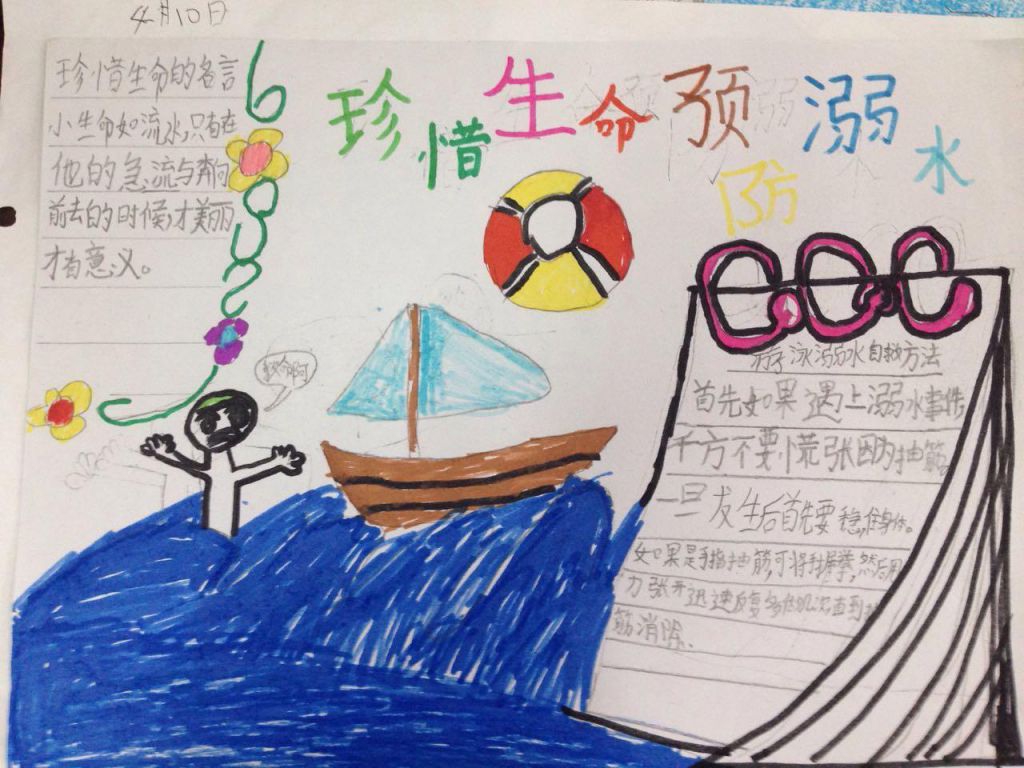 4月10日
珍惜生命预防溺水
珍惜生命的名言
小生命如流水,只有在
他的急流与奔向
前去的时候,才美丽
才有意义。
救命啊
游泳溺水自救方法
首先如果遇上溺水事件
千万不要慌张因为抽筋
一旦发生后首先要稳住身体。
如果是手指抽筋,可将手握拳,然后用
力张开迅速反复多做几次直到抽
筋消除。